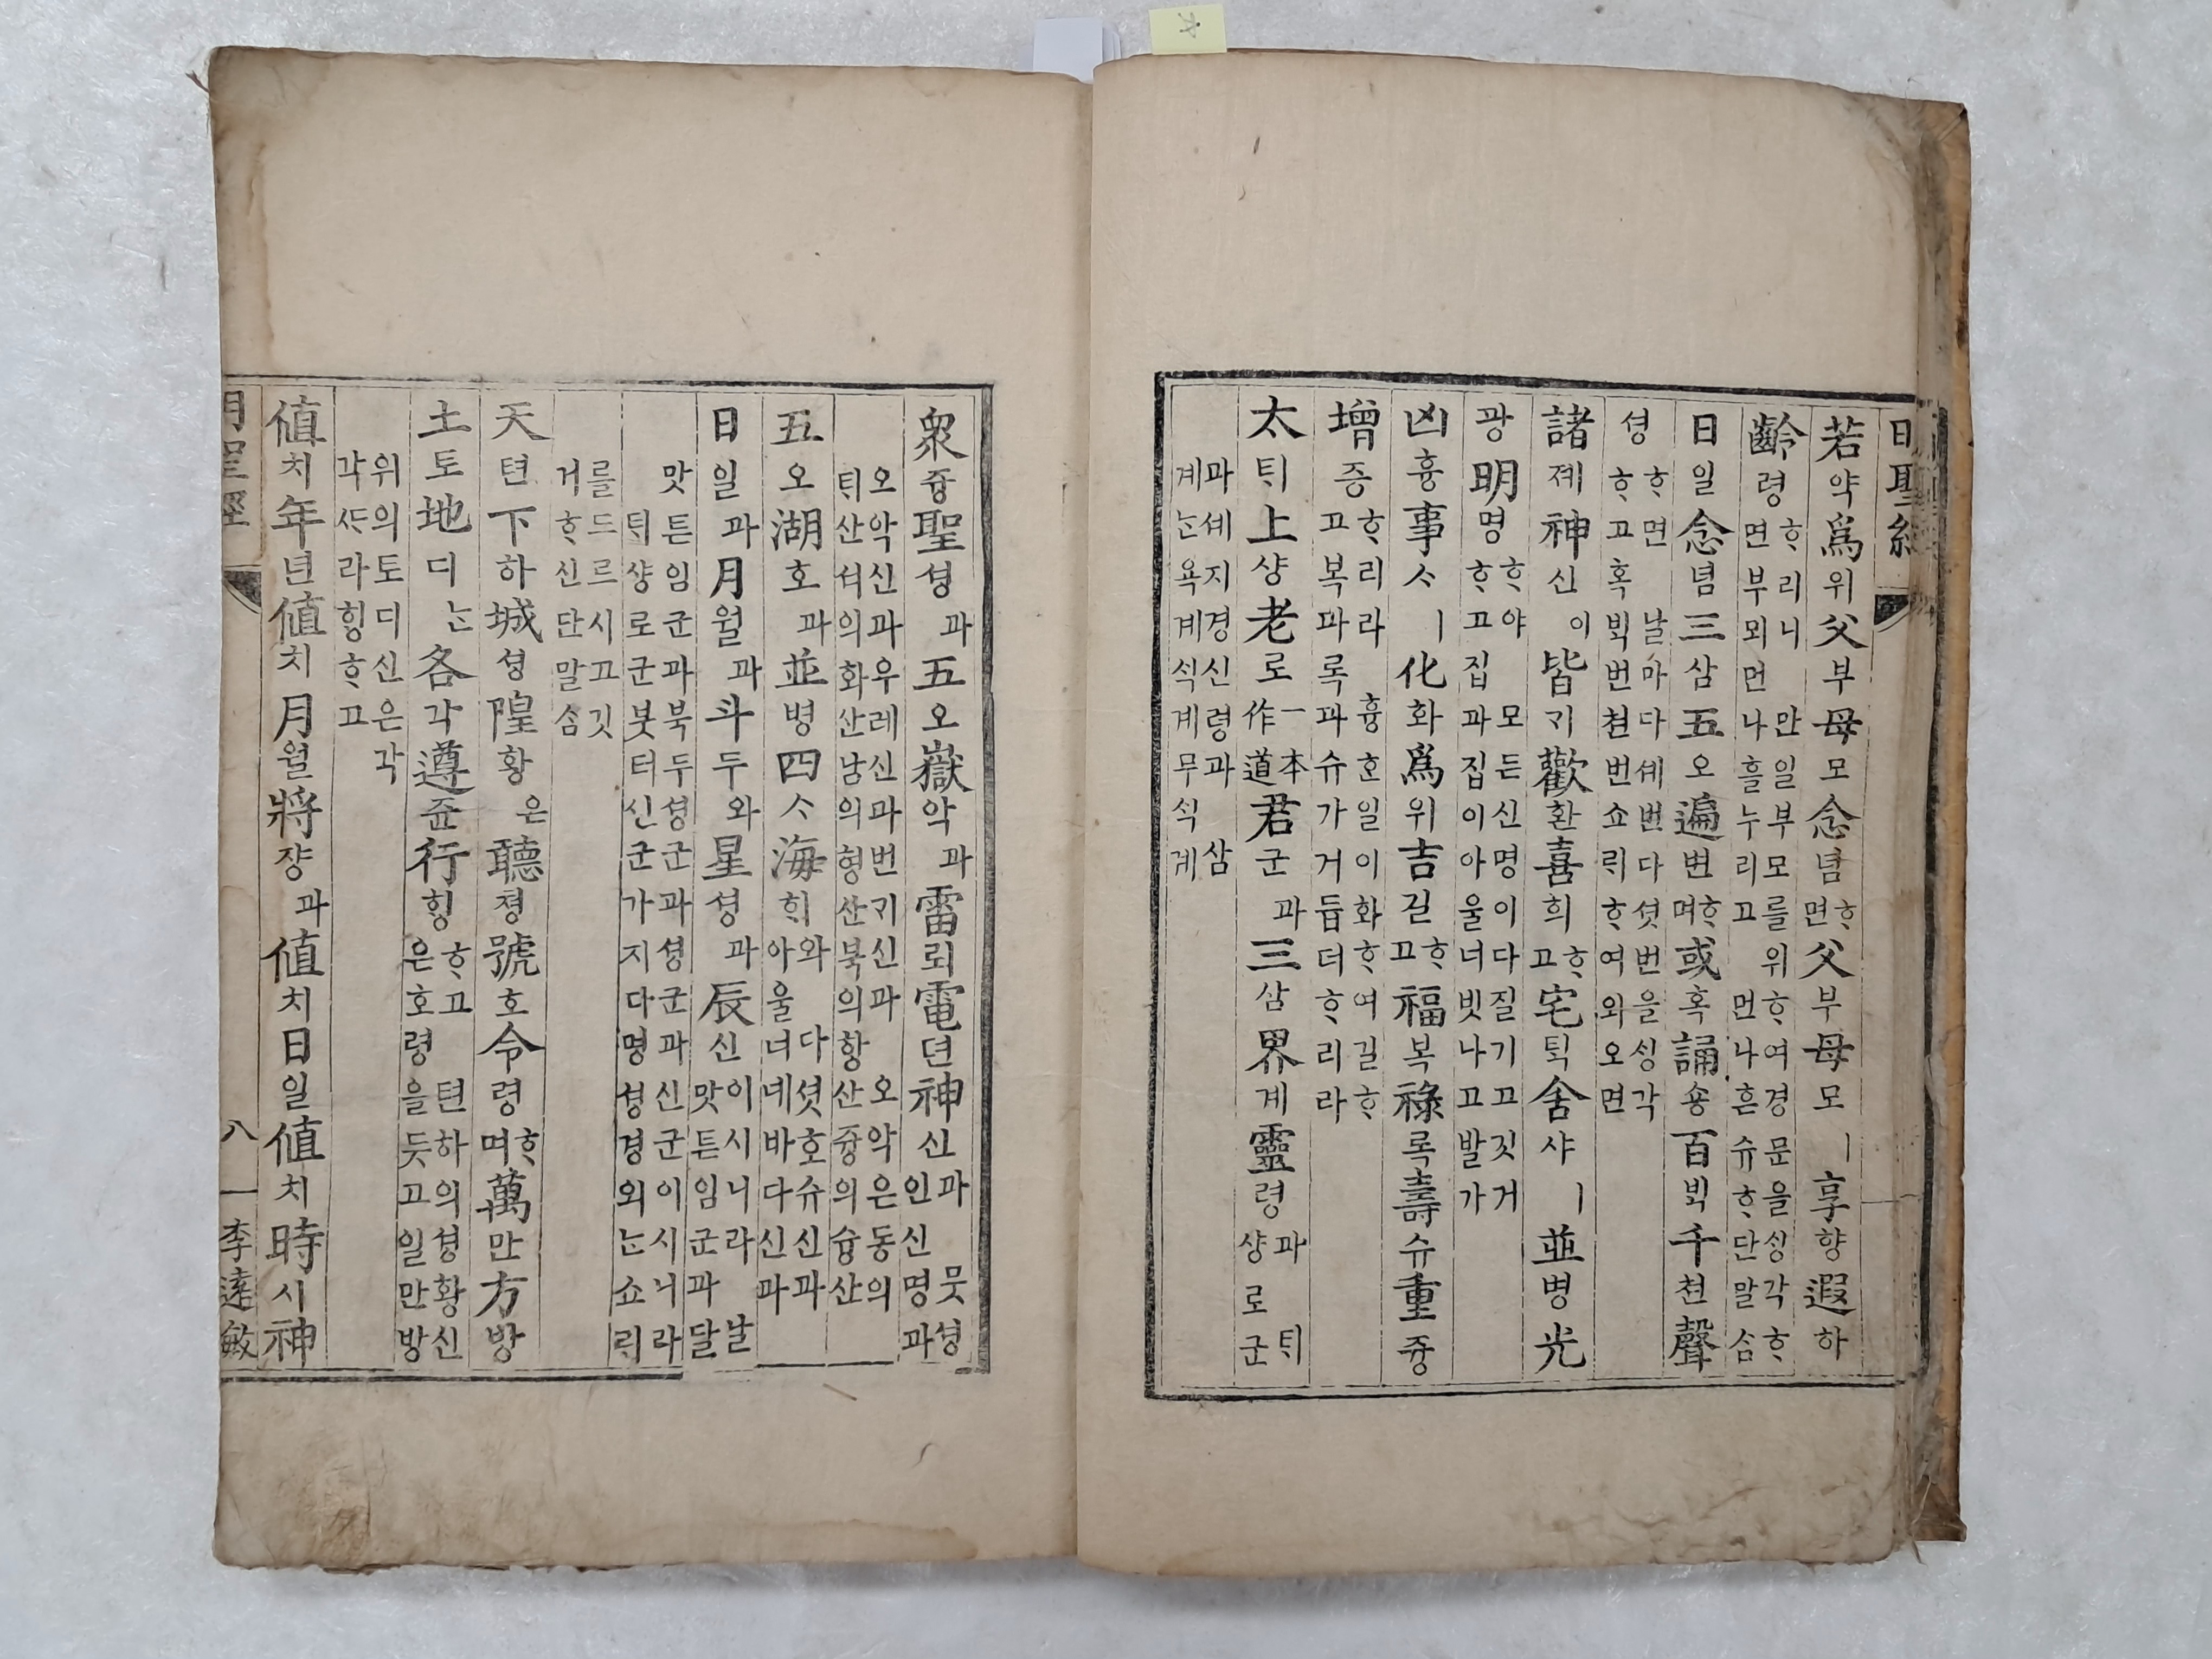 日聖經
若약爲위父부母모念념ᄒᆞ면父부母모ㅣ享향遐하
齡령ᄒᆞ리니 만일부모를위ᄒᆞ여경문을ᄉᆡᆼ각ᄒᆞ
면부뫼먼나흘누리고 먼나흔슈ᄒᆞ단말ᄉᆞᆷ
日일念념三삼五오遍변ᄒᆞ며或혹誦숑百ᄇᆡᆨ千쳔聲
셩ᄒᆞ면 날마다셰번다섯번을ᄉᆡᆼ각
ᄒᆞ고혹ᄇᆡᆨ번쳔번쇼ᄅᆡᄒᆞ여외오면
諸졔神신이皆ᄀᆡ歡환喜희ᄒᆞ고宅ᄐᆡᆨ舍샤ㅣ並병光
광明명ᄒᆞ야 모든신명이다질기고짓거
ᄒᆞ고집과집이아울너빗나고발가
凶흉事ᄉᆞㅣ化화爲위吉길ᄒᆞ고福복祿록壽슈重즁
增증ᄒᆞ리라 흉ᄒᆞᆫ일이화ᄒᆞ여길ᄒᆞ
고복파록과슈가거듭더ᄒᆞ리라
太ᄐᆡ上샹老로一本作道君군과三삼界계靈령과 ᄐᆡ
샹로군
과셰지경신령과 삼
계ᄂᆞᆫ욕계ᄉᆡᆨ계무ᄉᆡᆨ계
衆즁聖셩과五오嶽악과雷뢰電뎐神신과 뭇셩
인신명과
오악신과우레신과번ᄀᆡ신과 오악은동의
ᄐᆡ산셔의화산남의형산북의항산즁의슝산
五오湖호과並병四ᄉᆞ海ᄒᆡ와 다셧호슈신과
아울너네바다신과
日일과月월과斗두와星셩과辰신이시니라 날
맛튼임군과달
맛튼임군과북두셩군과셩군과신군이시니라
ᄐᆡ샹로군붓터신군가지다명셩경외ᄂᆞᆫ쇼ᄅᆡ
를드르시고깃
거ᄒᆞ신단말ᄉᆞᆷ
天텬下하城셩隍황은聽쳥號호令령ᄒᆞ며萬만方방
土토地디ᄂᆞᆫ各각遵쥰行ᄒᆡᆼᄒᆞ고 텬하의셩황신
은호령을듯고일만방
위의토디신은각
각ᄯᆞ라ᄒᆡᆼᄒᆞ고
値치年년値치月월將쟝과値치日일値치時시神
明聖經 八 李逵敏